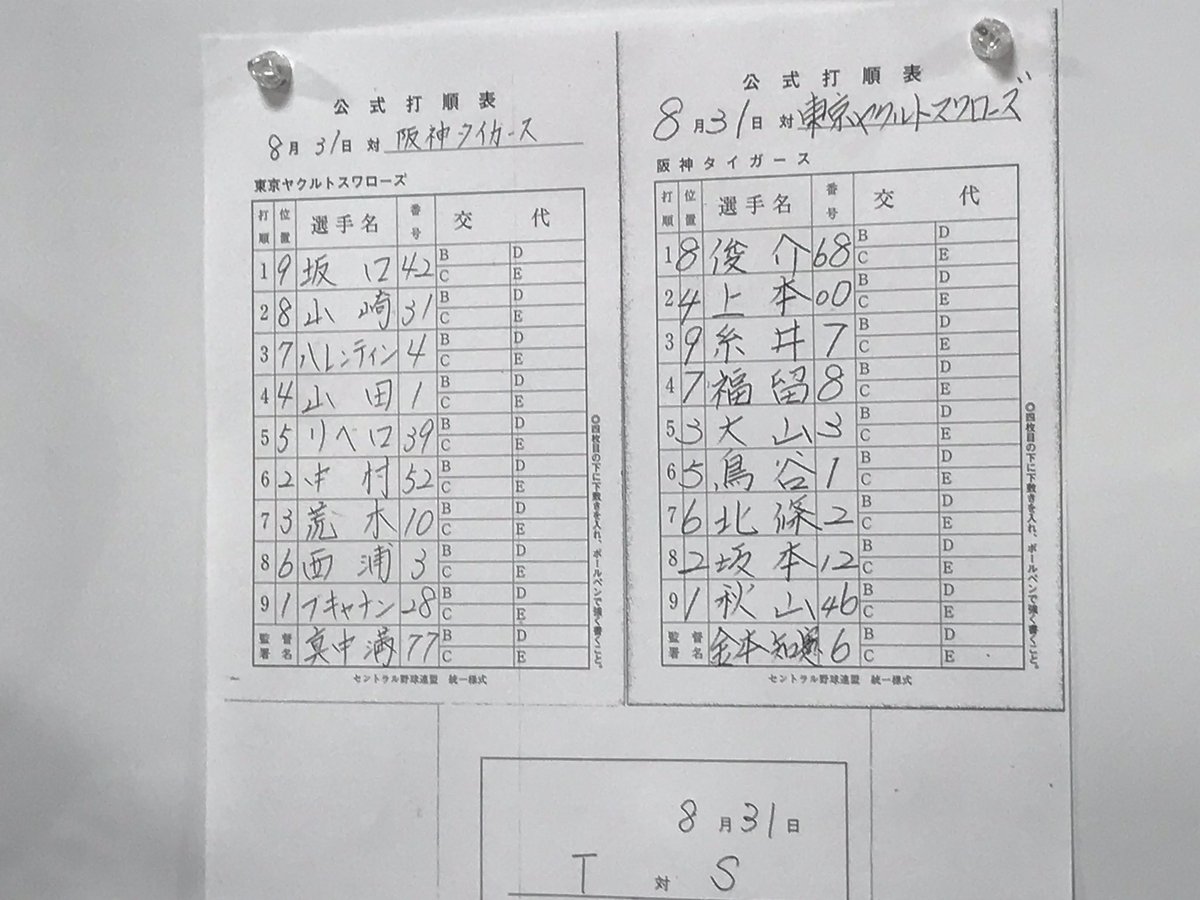 公式打順表
8月31日 対 阪神タイガース
東京ヤクルトスワローズ
打順 位置 選手名 番号 交代
1 9 坂口 42 B D C E
2 8 山崎 31 B D C E
3 7 バレンティン 4 B D C E
4 4 山田 1 B D C E
5 5 リベロ 39 B D C E
6 2 中村 52 B D C E
7 3 荒木 10 B D C E
8 6 西浦 3 B D C E
9 1 ブキャナン 28 B D C E
監督署名 真中満 77 B D C E
セントラル野球連盟 統一様式
◎四枚目の下に下敷きを入れ、ボールペンで強く書くこと。
公式打順表
8月31日 対 東京ヤクルトスワローズ
阪神タイガース
打順 位置 選手名 番号 交代
1 8 俊介 68 B D C E
2 4 上本 00 B D C E
3 9 糸井 7 B D C E
4 7 福留 8 B D C E
5 3 大山 3 B D C E
6 5 鳥谷 1 B D C E
7 6 北條 2 B D C E
8 2 坂本 12 B D C E
9 1 秋山 46 B D C E
監督署名 金本知憲 6 B D C E
セントラル野球連盟 統一様式
◎四枚目の下に下敷きを入れ、ボールペンで強く書くこと。
8月31日
T 対 S